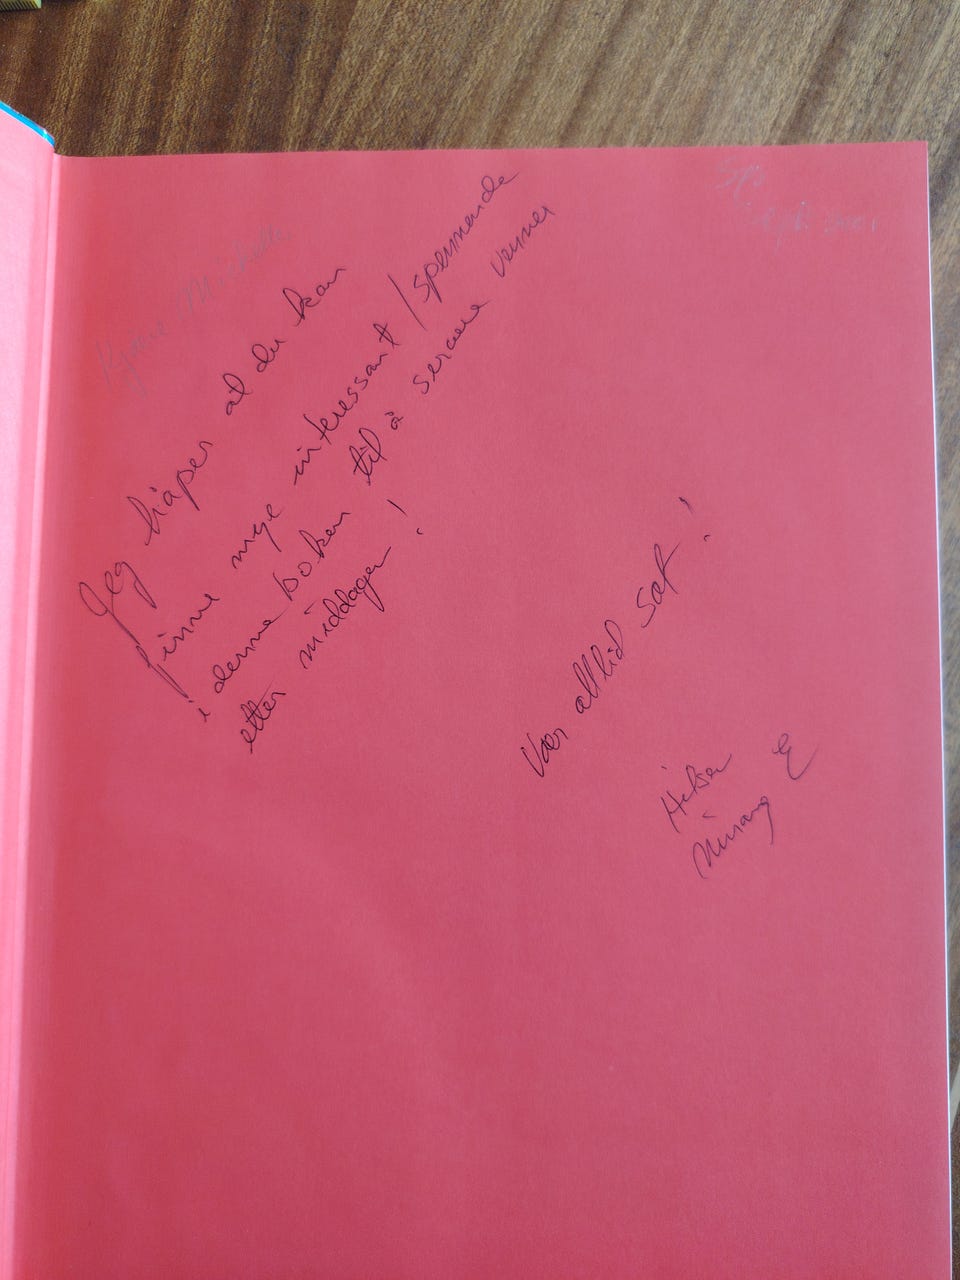 Kjære Michelle,
Jeg håper at du kan
finne mye interessant / spennende
i denne boken til å servere venner
etter middager!
Vær alltid sat!
Hilsen